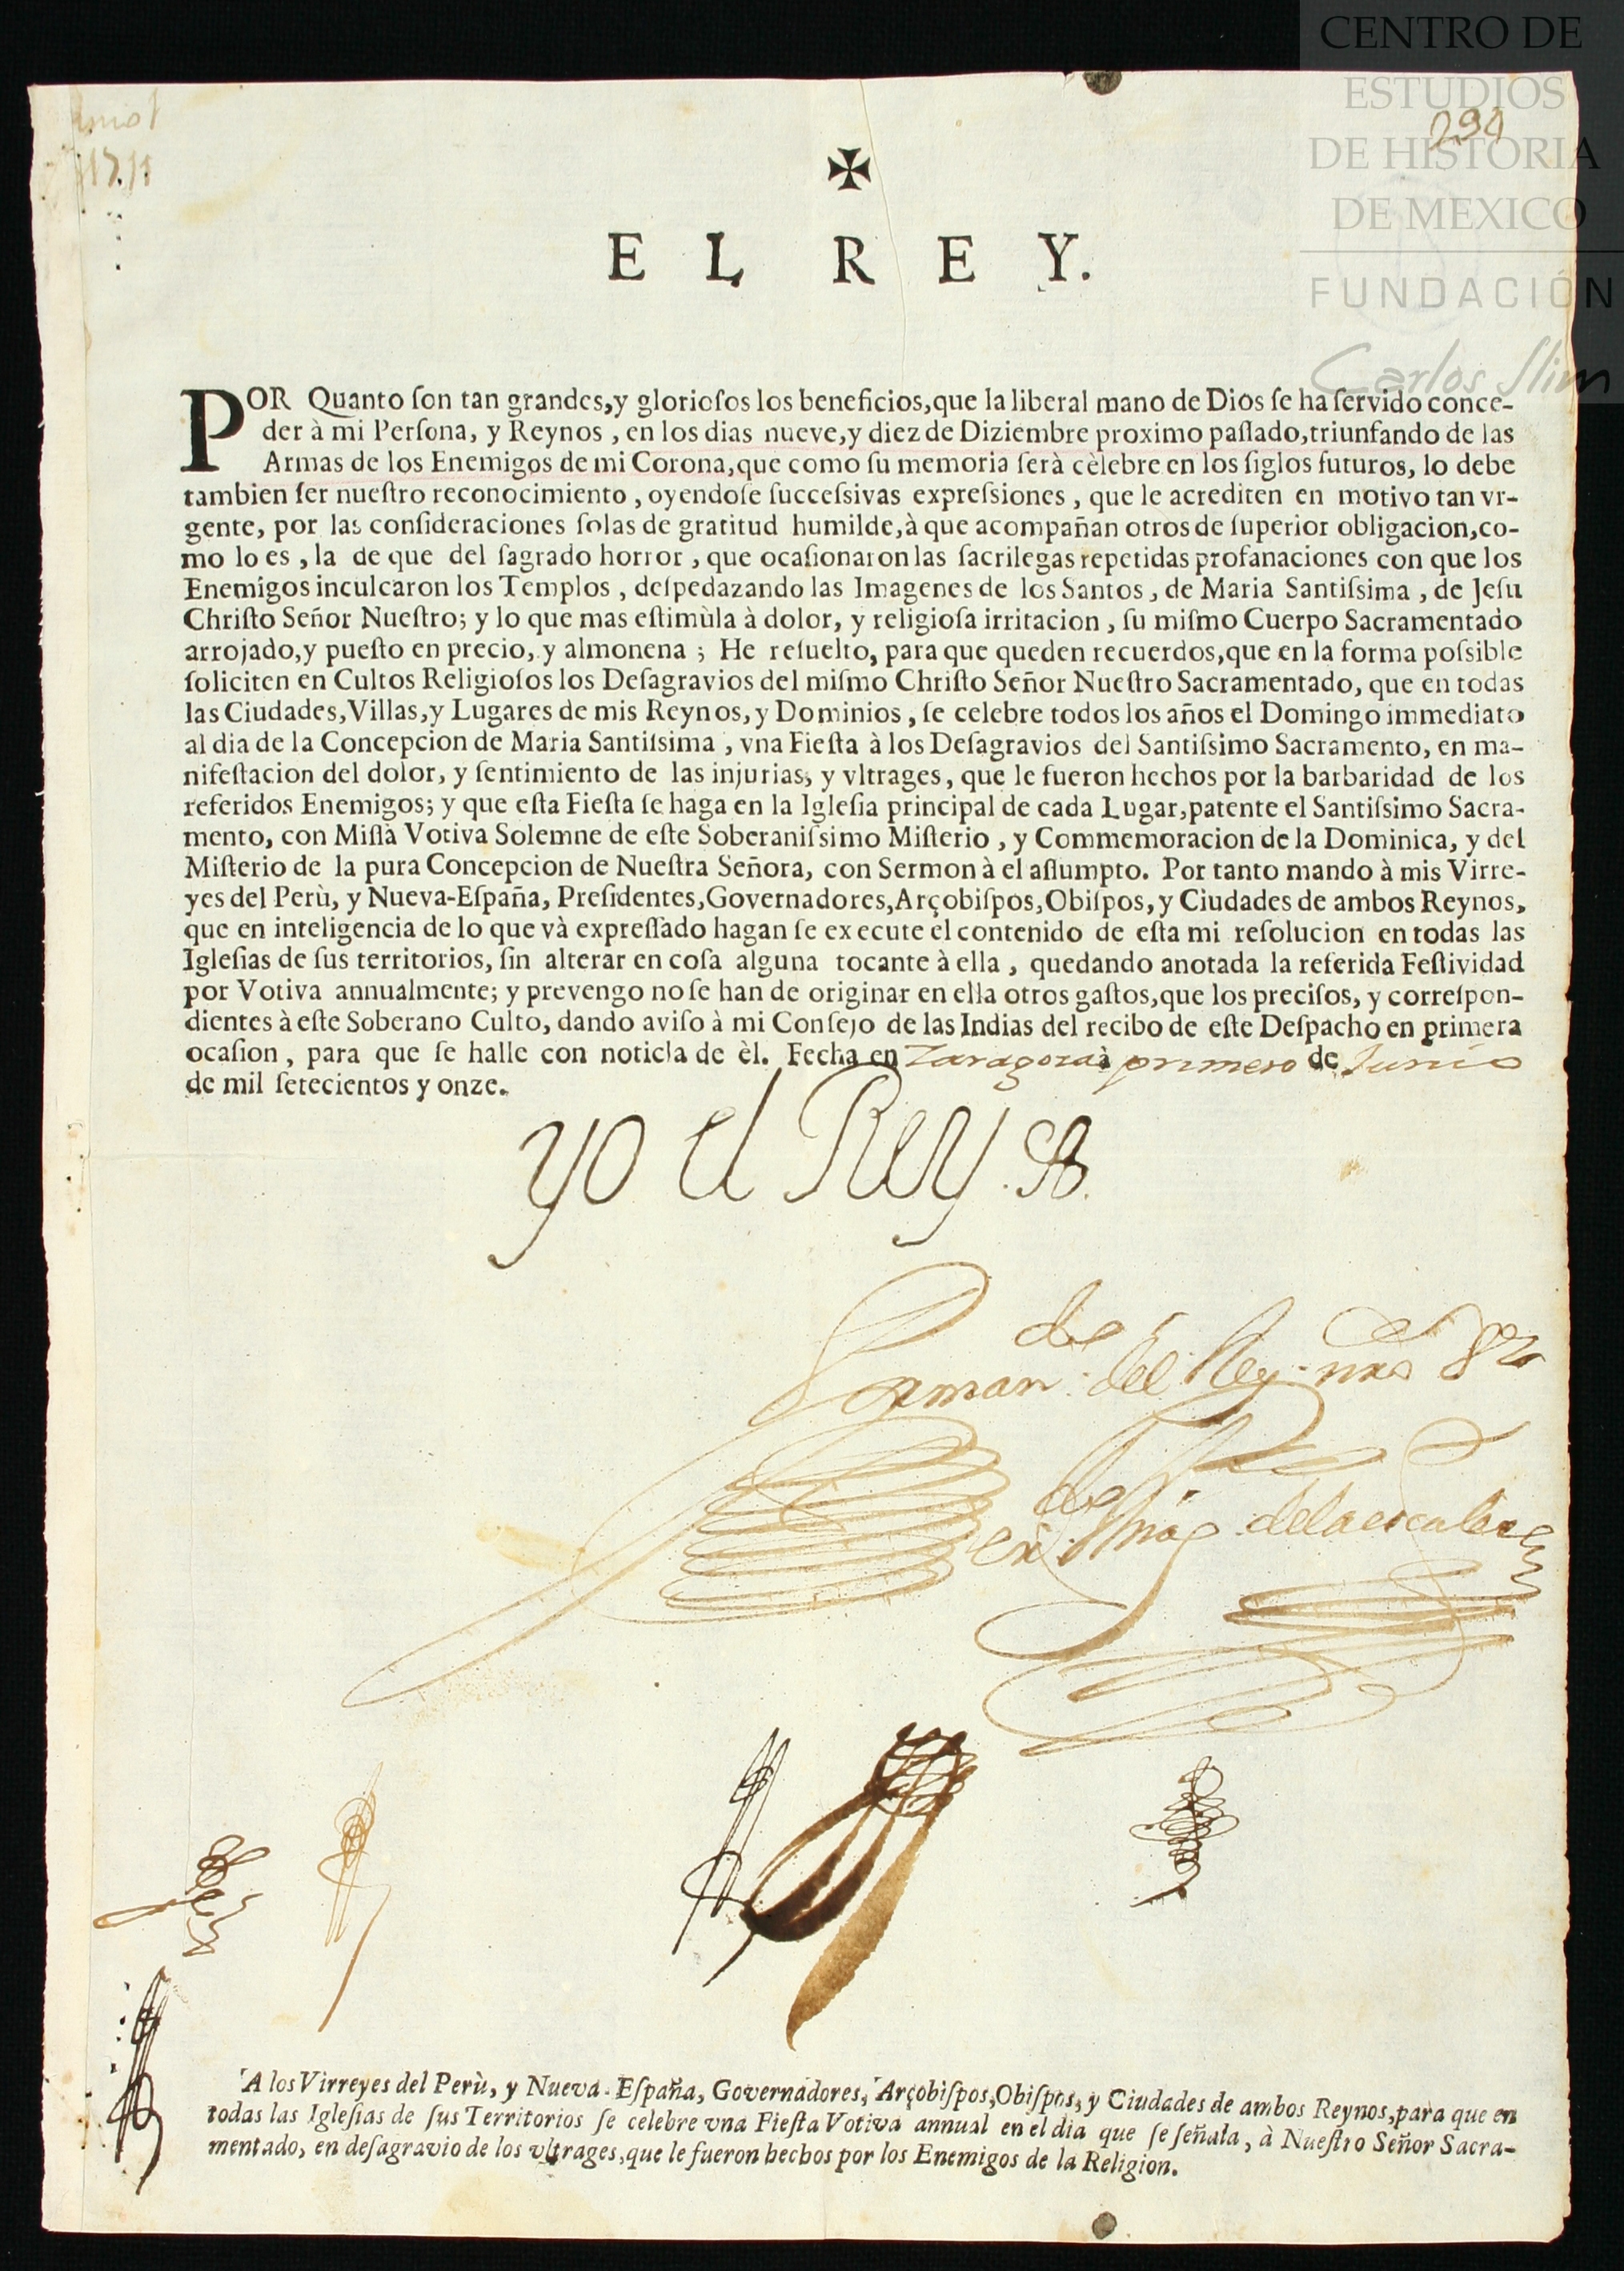 CENTRO DE
ESTUDIOS
DE HISTORIA
DE MEXICO
FUNDACIÓN
Carlos Slim
1711
294
✠
EL REY.
POR Quanto ſon tan grandes,y glorioſos los beneficios,que la liberal mano de Dios ſe ha ſervido conce-
der à mi Perſona, y Reynos , en los dias nueve,y diez de Diziembre proximo paſſado,triunfando de las
Armas de los Enemigos de mi Corona,que como ſu memoria ſerà cèlebre en los ſiglos futuros, lo debe
tambien ſer nueſtro reconocimiento , oyendoſe ſucceſsivas expreſsiones , que le acrediten en motivo tan vr-
gente, por las conſideraciones ſolas de gratitud humilde,à que acompañan otros de ſuperior obligacion,co-
mo lo es , la de que del ſagrado horror , que ocaſionaron las ſacrilegas repetidas profanaciones con que los
Enemigos inculcaron los Templos , deſpedazando las Imagenes de los Santos , de Maria Santiſsima , de Jeſu
Chriſto Señor Nueſtro; y lo que mas eſtimùla à dolor, y religioſa irritacion , ſu miſmo Cuerpo Sacramentado
arrojado,y pueſto en precio, y almonena ; He reſuelto, para que queden recuerdos,que en la forma poſsible
ſoliciten en Cultos Religioſos los Deſagravios del miſmo Chriſto Señor Nueſtro Sacramentado, que en todas
las Ciudades,Villas,y Lugares de mis Reynos, y Dominios , ſe celebre todos los años el Domingo immediato
al dia de la Concepcion de Maria Santiſsima , vna Fieſta à los Deſagravios del Santiſsimo Sacramento, en ma-
nifeſtacion del dolor, y ſentimiento de las injurias, y vltrages, que le fueron hechos por la barbaridad de los
referidos Enemigos; y que eſta Fieſta ſe haga en la Igleſia principal de cada Lugar,patente el Santiſsimo Sacra-
mento, con Miſſà Votiva Solemne de eſte Soberaniſsimo Miſterio , y Commemoracion de la Dominica, y del
Miſterio de la pura Concepcion de Nueſtra Señora, con Sermon à el aſſumpto. Por tanto mando à mis Virre-
yes del Perù, y Nueva-Eſpaña, Preſidentes,Governadores,Arçobiſpos,Obiſpos, y Ciudades de ambos Reynos,
que en inteligencia de lo que và expreſſado hagan ſe execute el contenido de eſta mi reſolucion en todas las
Igleſias de ſus territorios, ſin alterar en coſa alguna tocante à ella , quedando anotada la referida Feſtividad
por Votiva annualmente; y prevengo no ſe han de originar en ella otros gaſtos,que los preciſos, y correſpon-
dientes à eſte Soberano Culto, dando aviſo à mi Conſejo de las Indias del recibo de eſte Deſpacho en primera
ocaſion , para que ſe halle con noticia de èl. Fecha en Zaragoza à primero de Junio
de mil ſetecientos y onze.
yo el Rey
Por man.do del Rey nro Sr
A los Virreyes del Perù, y Nueva-Eſpaña, Governadores, Arçobiſpos,Obiſpos, y Ciudades de ambos Reynos,para que en
todas las Igleſias de ſus Territorios ſe celebre vna Fieſta Votiva annual en el dia que ſe ſeñala, à Nueſtro Señor Sacra-
mentado, en deſagravio de los vltrages,que le fueron hechos por los Enemigos de la Religion.